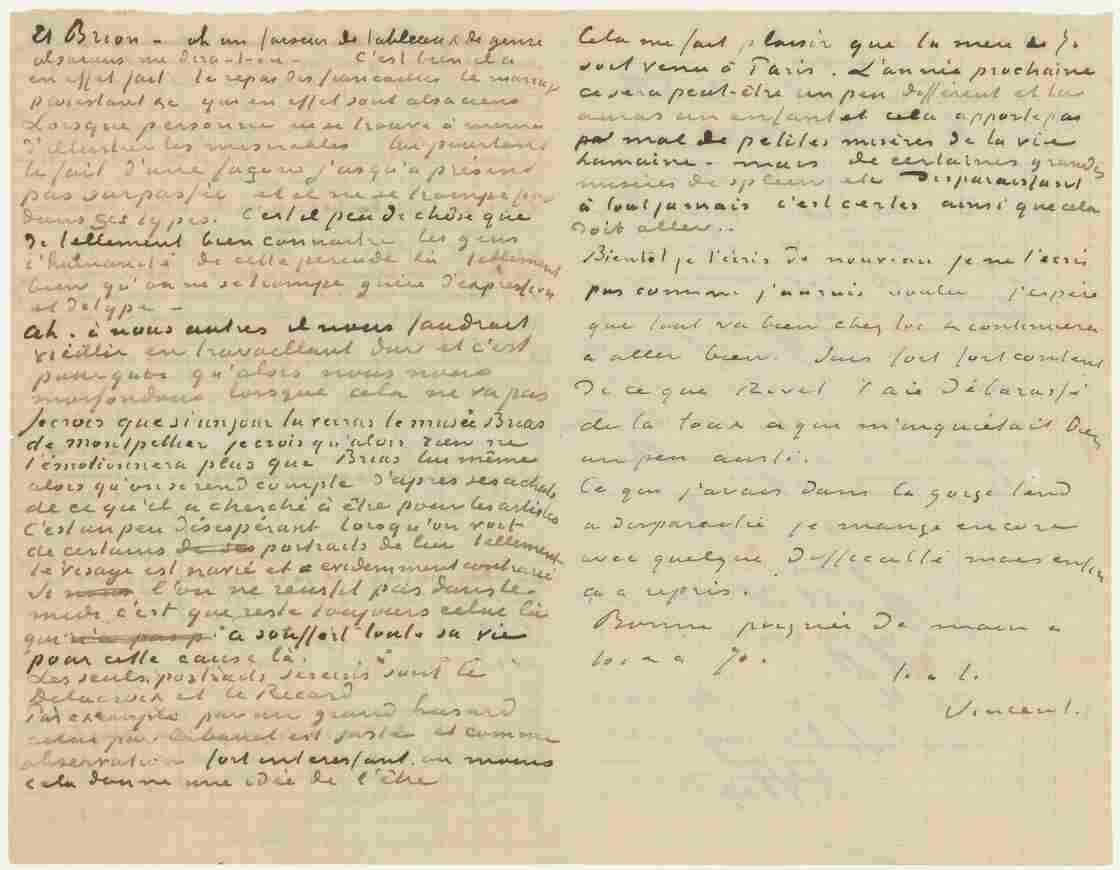 Et Brion – oh un faiseur de tableaux de genre
alsaciens me dira-t-on – C'est bien il a
en effet fait le repas des fiancailles le mariage
protestant &c qui en effet sont alsaciens
Lorsque personne ne se trouve à meme
d'illustrer les miserables lui pourtant
le fait d'une façon jusqu'à présent
pas surpassée et il ne se trompe pas
dans ses types. C'est il peu de chôse que
de tellement bien connaitre les gens
l'humanité de cette periode là tellement
bien qu'on ne se trompe guère d'expression
et de type –
Ah. à nous autres il nous faudrait
vieillir en travaillant dur et c'est
pourquoi qu'alors nous nous
morfondons lorsque cela ne va pas
Je crois que si un jour tu verras le musée Brias
de montpellier je crois qu'alors rien ne
t'émotionnera plus que Brias lui même
alors qu'on se rend compte d'après ses achats
de ce qu'il a cherché à être pour les artistes
C'est un peu désespérant lorsqu'on voit
de certains de ses portraits de lui tellement
le visage est navré et evidemment contrarié
Si l'on ne reussit pas dans le
midi c'est que reste toujours celui là
qui n'a pas p. a souffert toute sa vie
pour cette cause là.
Les seuls portraits sereins sont le
Delacroix et le Ricard
Par exemple par un grand hasard
celui par Cabanel est juste et comme
observation fort interessant. au moins
cela donne une idée de l'être
Cela me fait plaisir que la mere de Jo
soit venu à Paris. L'année prochaine
ce sera peut-être un peu different et tu
auras un enfant et cela apporte pas
mal de petites misères de la vie
humaine – mais de certaines grandes
misères de spleen etc disparaissant
à tout jamais c'est certes ainsi que cela
doit aller..
Bientôt je t'écris de nouveau je ne t'écris
pas comme j'aurais voulu j'espère
que tout va bien chez toi & continuera
à aller bien. Suis fort fort content
de ce que Rivet t'aie débarassé
de la toux ce qui m'inquiétait bien
un peu aussi.
Ce que j'avais dans la gorge tend
à disparaitre je mange encore
avec quelque difficulté mais enfin
ça a repris.
Bonne poignée de main à
toi & à Jo.
t. à t.
Vincent.